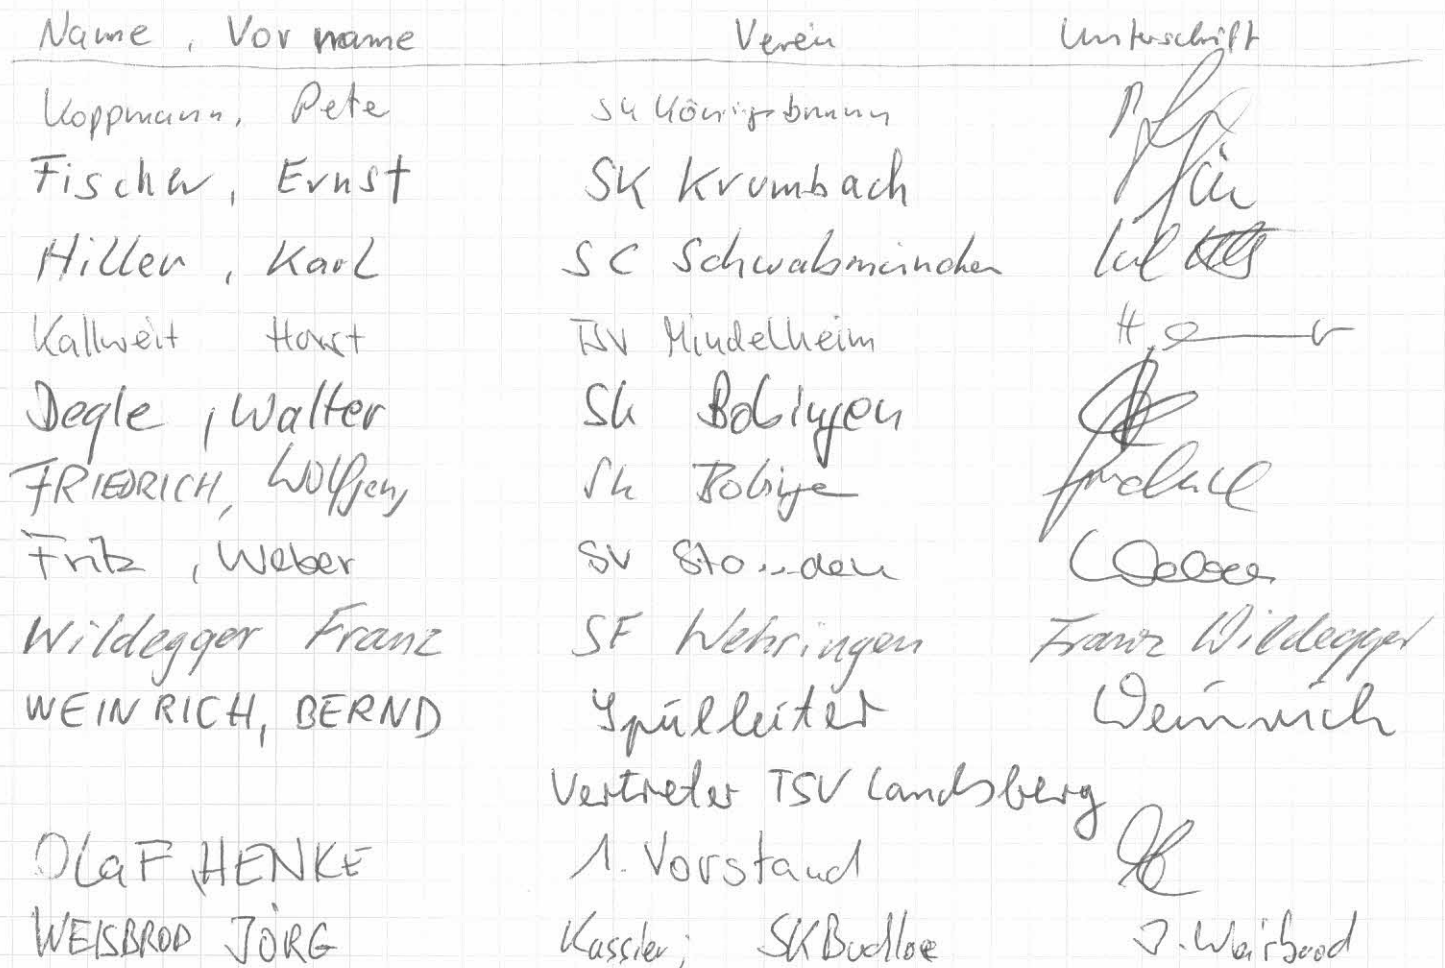 Name, Vorname Verein Unterschrift
Koppmann, Pete SK Königsbrunn
Fischer, Ernst SK Krumbach
Hiller, Karl SC Schwabmünchen
Kallweit Horst TSV Mindelheim
Degle, Walter SK Bobingen
FRIEDRICH, Wolfgang SK Bobingen
Fritz, Weber SV Weber
Wildegger Franz SF Wehringen Franz Wildegger
WEINRICH, BERND Spielleiter Weinrich
Vertreter TSV Landsberg
OLaF, HENKE 1. Vorstand
WEISBROD JÖRG Kassier, SK Buchloe J. Weisbrod